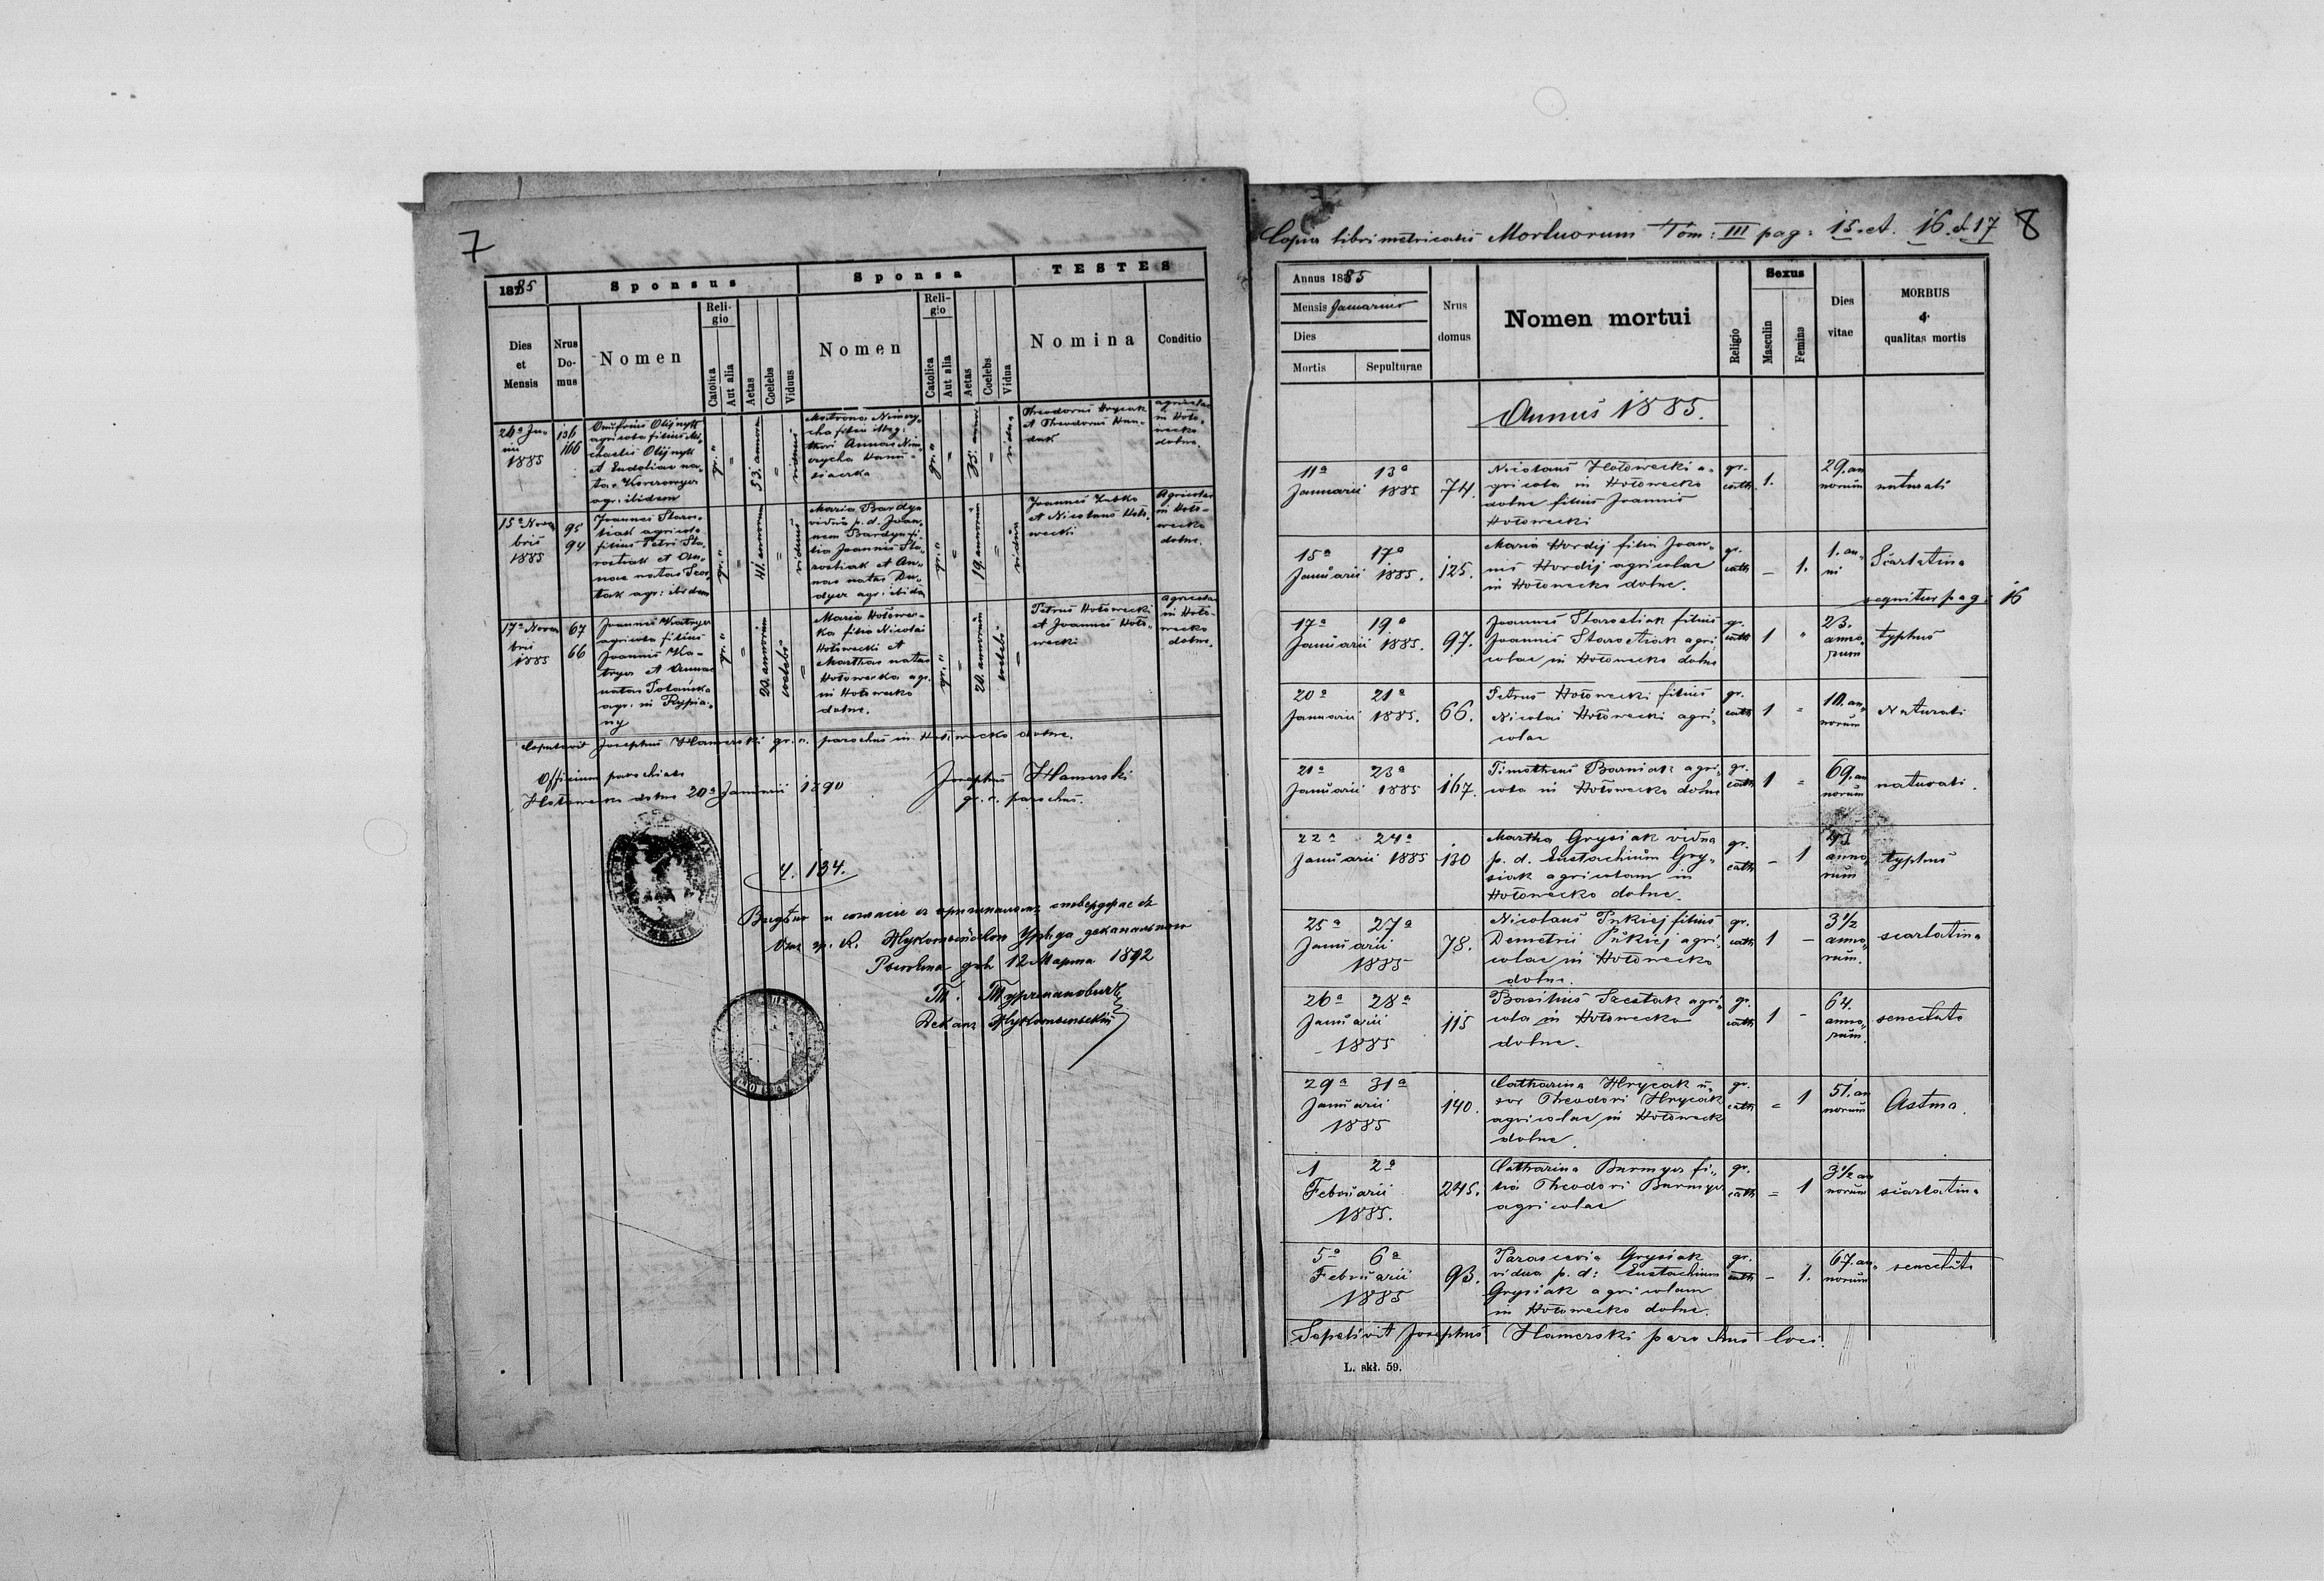 7
1885
Sponsus
Sponsa
TESTES
Dies et Mensis
Nrus Domus
Nomen
Religio
Catolica
Aut alia
Aetas
Coelebs
Viduus
Nomen
Religio
Catolica
Aut alia
Aetas
Coelebs
Vidua
Nomina
Conditio
1885
136
166
Onufrius Olijnyk
agricola filius Mi-
chaelis Olijnyk
et Eudokiae na-
agr. ibidem
gr. "
53. annorum
viduus
gr. "
35. annor
vidua
Theodorus Hrycak
et Theodorus
agricolae
in Hoło-
wecko
dolne.
15ª Novem
bris
1885
95
94
Joannes Staro-
stiak agricola
filius Petri Sta-
rostiak et An-
nae natae Szes-
tak agr: ibidem
gr. "
41. annorum
viduus
Maria Bardyn
vidua p. d. Joan-
nem Bardyn fi-
lia Joannis Sta-
rostiak et An-
nae natae
agr: ibidem
gr. "
19. annorum
vidua
Joannes
et Nicolaus Hoło-
wecki
Agricolae
in Hoło-
wecko
dolne.
17ª Novem
bris
1885
67
66
Joannes
agricola filius
Joannis
et Annae
natae
agr. in Rypia-
ny
gr. "
20. annorum
coelebs
Maria Hołowec-
ka filia Nicolai
Hołowecki et
Marthae natae
Hołowecka agr.
in Hołowecko
dolne.
gr. "
20. annorum
coelebs
Petrus Hołowecki
et Joannes Hoło-
wecki
agricolae
in Hoło-
wecko
dolne.
Copulavit Josephus Hamerski gr. c. parochus in Hołowecko dolne.
Officium parochiale
Hołowecko dolne 20ª Januarii 1890
Josephus Hamerski
gr. c. parochus.
Ч. 134.
12 Марта 1892
Copia libri metricalis Mortuorum Tom: III pag: 15. et. 16. et 17
8
Annus 1885
Mensis Januarius
Dies
Mortis
Sepulturae
Nrus domus
Nomen mortui
Religio
Sexus
Masculin
Femina
Dies vitae
MORBUS
&
qualitas mortis
Annus 1885.
11ª 13ª
Januarii 1885
74.
Nicolaus Hołowecki a-
gricola in Hołowecko
dolne filius Joannis
Hołowecki
gr. cath.
1.
29. an
norum
naturali
15ª 17ª
Januarii 1885.
125.
Maria Hordij filia Joan-
nis Hordij agricolae
in Hołowecko dolne.
gr. cath
–
1.
1. an-
ni
Scarlatina
sequitur pag: 16
17ª 19ª
Januarii 1885.
97.
Joannes Starostiak filius
Joannis Starostiak agri-
colae in Hołowecko dolne
gr. cath
1
"
23.
anno-
rum
typhus
20ª 21ª
Januarii 1885.
66.
Petrus Hołowecki filius
Nicolai Hołowecki agri-
colae
gr. cath
1
10. an-
norum
Naturali
21ª 23ª
Januarii 1885
167.
Timotheus Barniak agri-
cola in Hołowecko dolne
gr. cath
1
69. an
norum
naturali.
22ª 24ª
Januarii 1885
130
Martha Grysiak vidua
p. d. Eustachium Gry-
siak agricolam in
Hołowecko dolne.
gr. cath
–
1
43
anno-
rum
typhus
25ª 27ª
Januarii
1885
78.
Nicolaus Pukiej filius
Demetrii Pukiej agri-
colae in Hołowecko
dolne.
gr. cath
1
–
3 1/2
anno-
rum.
scarlatina
26ª 28ª
Januarii
1885
115
Basilius Szestak agri-
cola in Hołowecko
dolne.
gr. cath
1
–
64.
anno-
rum.
senectute
29ª 31ª
Januarii
1885
140.
Catharina Hrycak u-
xor Theodori Hrycak
agricolae in Hołoweck
dolne.
gr. cath
1
51. an
norum
Astma.
1 2ª
Februarii
1885.
245.
Catharina Burmyn fi-
lia Theodori Burmyn
agricolae
gr. cath
1
3 1/2 an
norum
scarlatina
5ª 6ª
Februarii
1885
93.
Parascevia Grysiak
vidua p. d: Eustachium
Grysiak agricolam
in Hołowecko dolne.
gr. cath
–
1.
67. an-
norum
senectute
Sepelivit Josephus Hamerski parochus loci.
L. skł. 59.